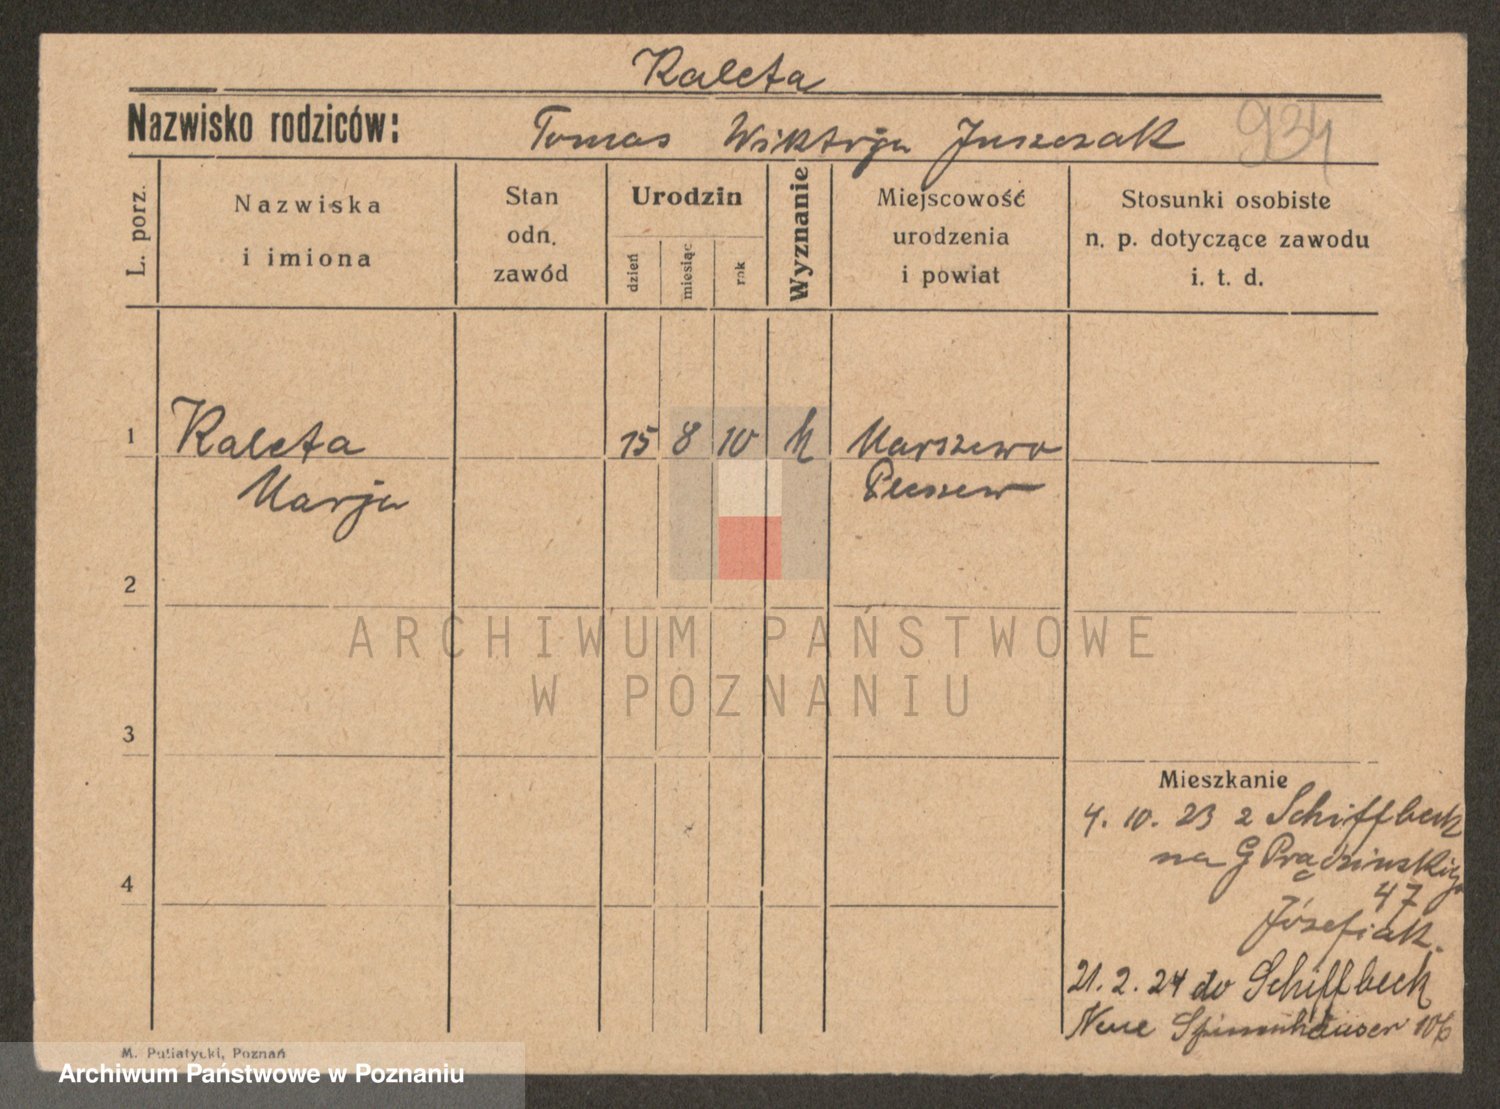 Kaleta
Nazwisko rodziców:
Tomas Wiktorja Juszczak
934
L. porz.
Nazwiska
i imiona
Stan
odn.
zawód
Urodzin
dzień
miesiąc
rok
Wyznanie
Miejscowość
urodzenia
i powiat
Stosunki osobiste
n. p. dotyczące zawodu
i. t. d.
1
Kaleta
15 8 10
Marszewo
Marja
Pleszew
2
ARCHIWUM PAŃSTWOWE
W POZNANIU
3
Mieszkanie
4. 10. 23 z Schiffbeck
na G Prądzinskiego
4
47
Józefiak.
21. 2. 24 do Schiffbeck
Neue Spinnhäuser
M. Puliatycki, Poznań
Archiwum Państwowe w Poznaniu